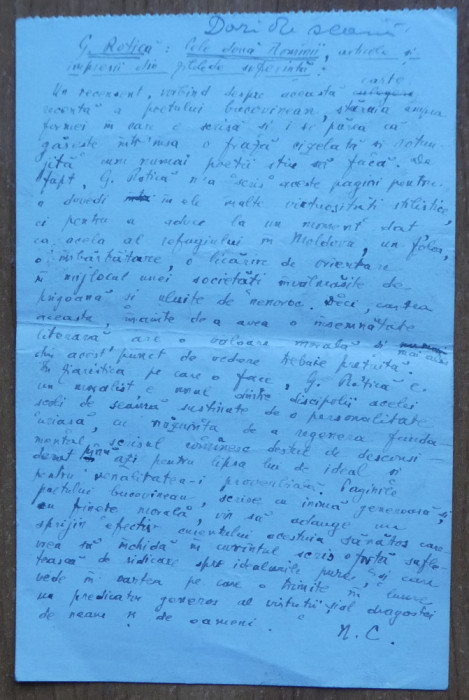 Dări de seamă
G. Rotică: Cele două Românii, articole și
impresii din zilele de suferință.
Un recensent, vorbind despre această carte
a poetului bucovinean, stăruia asupra
formei în care e scrisă și i se părea că
găsește într'însa o frază cizelată și
cum numai poetii știu să facă. De
fapt, G. Rotică n'a scris aceste pagini pentru
a dovedi în ele multe virtuozități stilistice,
ci pentru a aduce la un moment dat,
ca acela al refugiului în Moldova, un folos,
o îmbărbătare, o licărire de orientare
în mijlocul unei societăți învălmășite de
și uluite de nenoroc. Deci cartea
aceasta, înainte de a avea o însemnătate
literară are o valoare morală și mai ales
din acest punct de vedere trebuie prețuită.
În ziaristica pe care o face, G. Rotică e
un moralist e unul dintre discipolii acelei
școli de seamă susținută de o personalitate
uriașă, cu năzuința de a regenera funda-
mental scrisul românesc destul de
până azi pentru lipsa lui de ideal și
pentru venalitatea-i Paginile
poetului bucovinean, scrise cu inimă generoasă și
cu ținută morală, vin să adauge un
sprijin efectiv curentului acestuia sănătos care
vrea să închidă în cuvântul scris o forță sufle-
tească de ridicare spre idealurile pure, și care
vede în cartea pe care o trimite în lume
un predicator generos al virtuții și al dragostei
de neam și de oameni.
N. C.